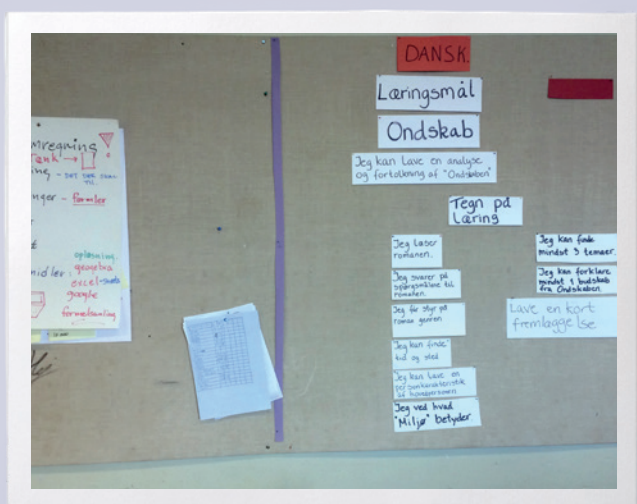 mregning
Tænk →
ing - DET DER SKAL
TIL.
nger - formler
opløsning.
midler: geogebra
excel
google
formelsamling
DANSK.
Læringsmål
Ondskab
Jeg kan lave en analyse
og fortolkning af "Ondskaben"
Tegn på
læring
Jeg læser
romanen.
Jeg svarer på
spørgsmålene til
romanen.
Jeg får styr på
roman genren
Jeg kan finde
tid og sted
Jeg kan lave en
personkarakteristik
af hovedpersonen
Jeg ved hvad
"Miljø" betyder
Jeg kan finde
mindst 3 temaer.
Jeg kan forklare
mindst 1 budskab
fra Ondskaben.
Lave en kort
fremlæggelse